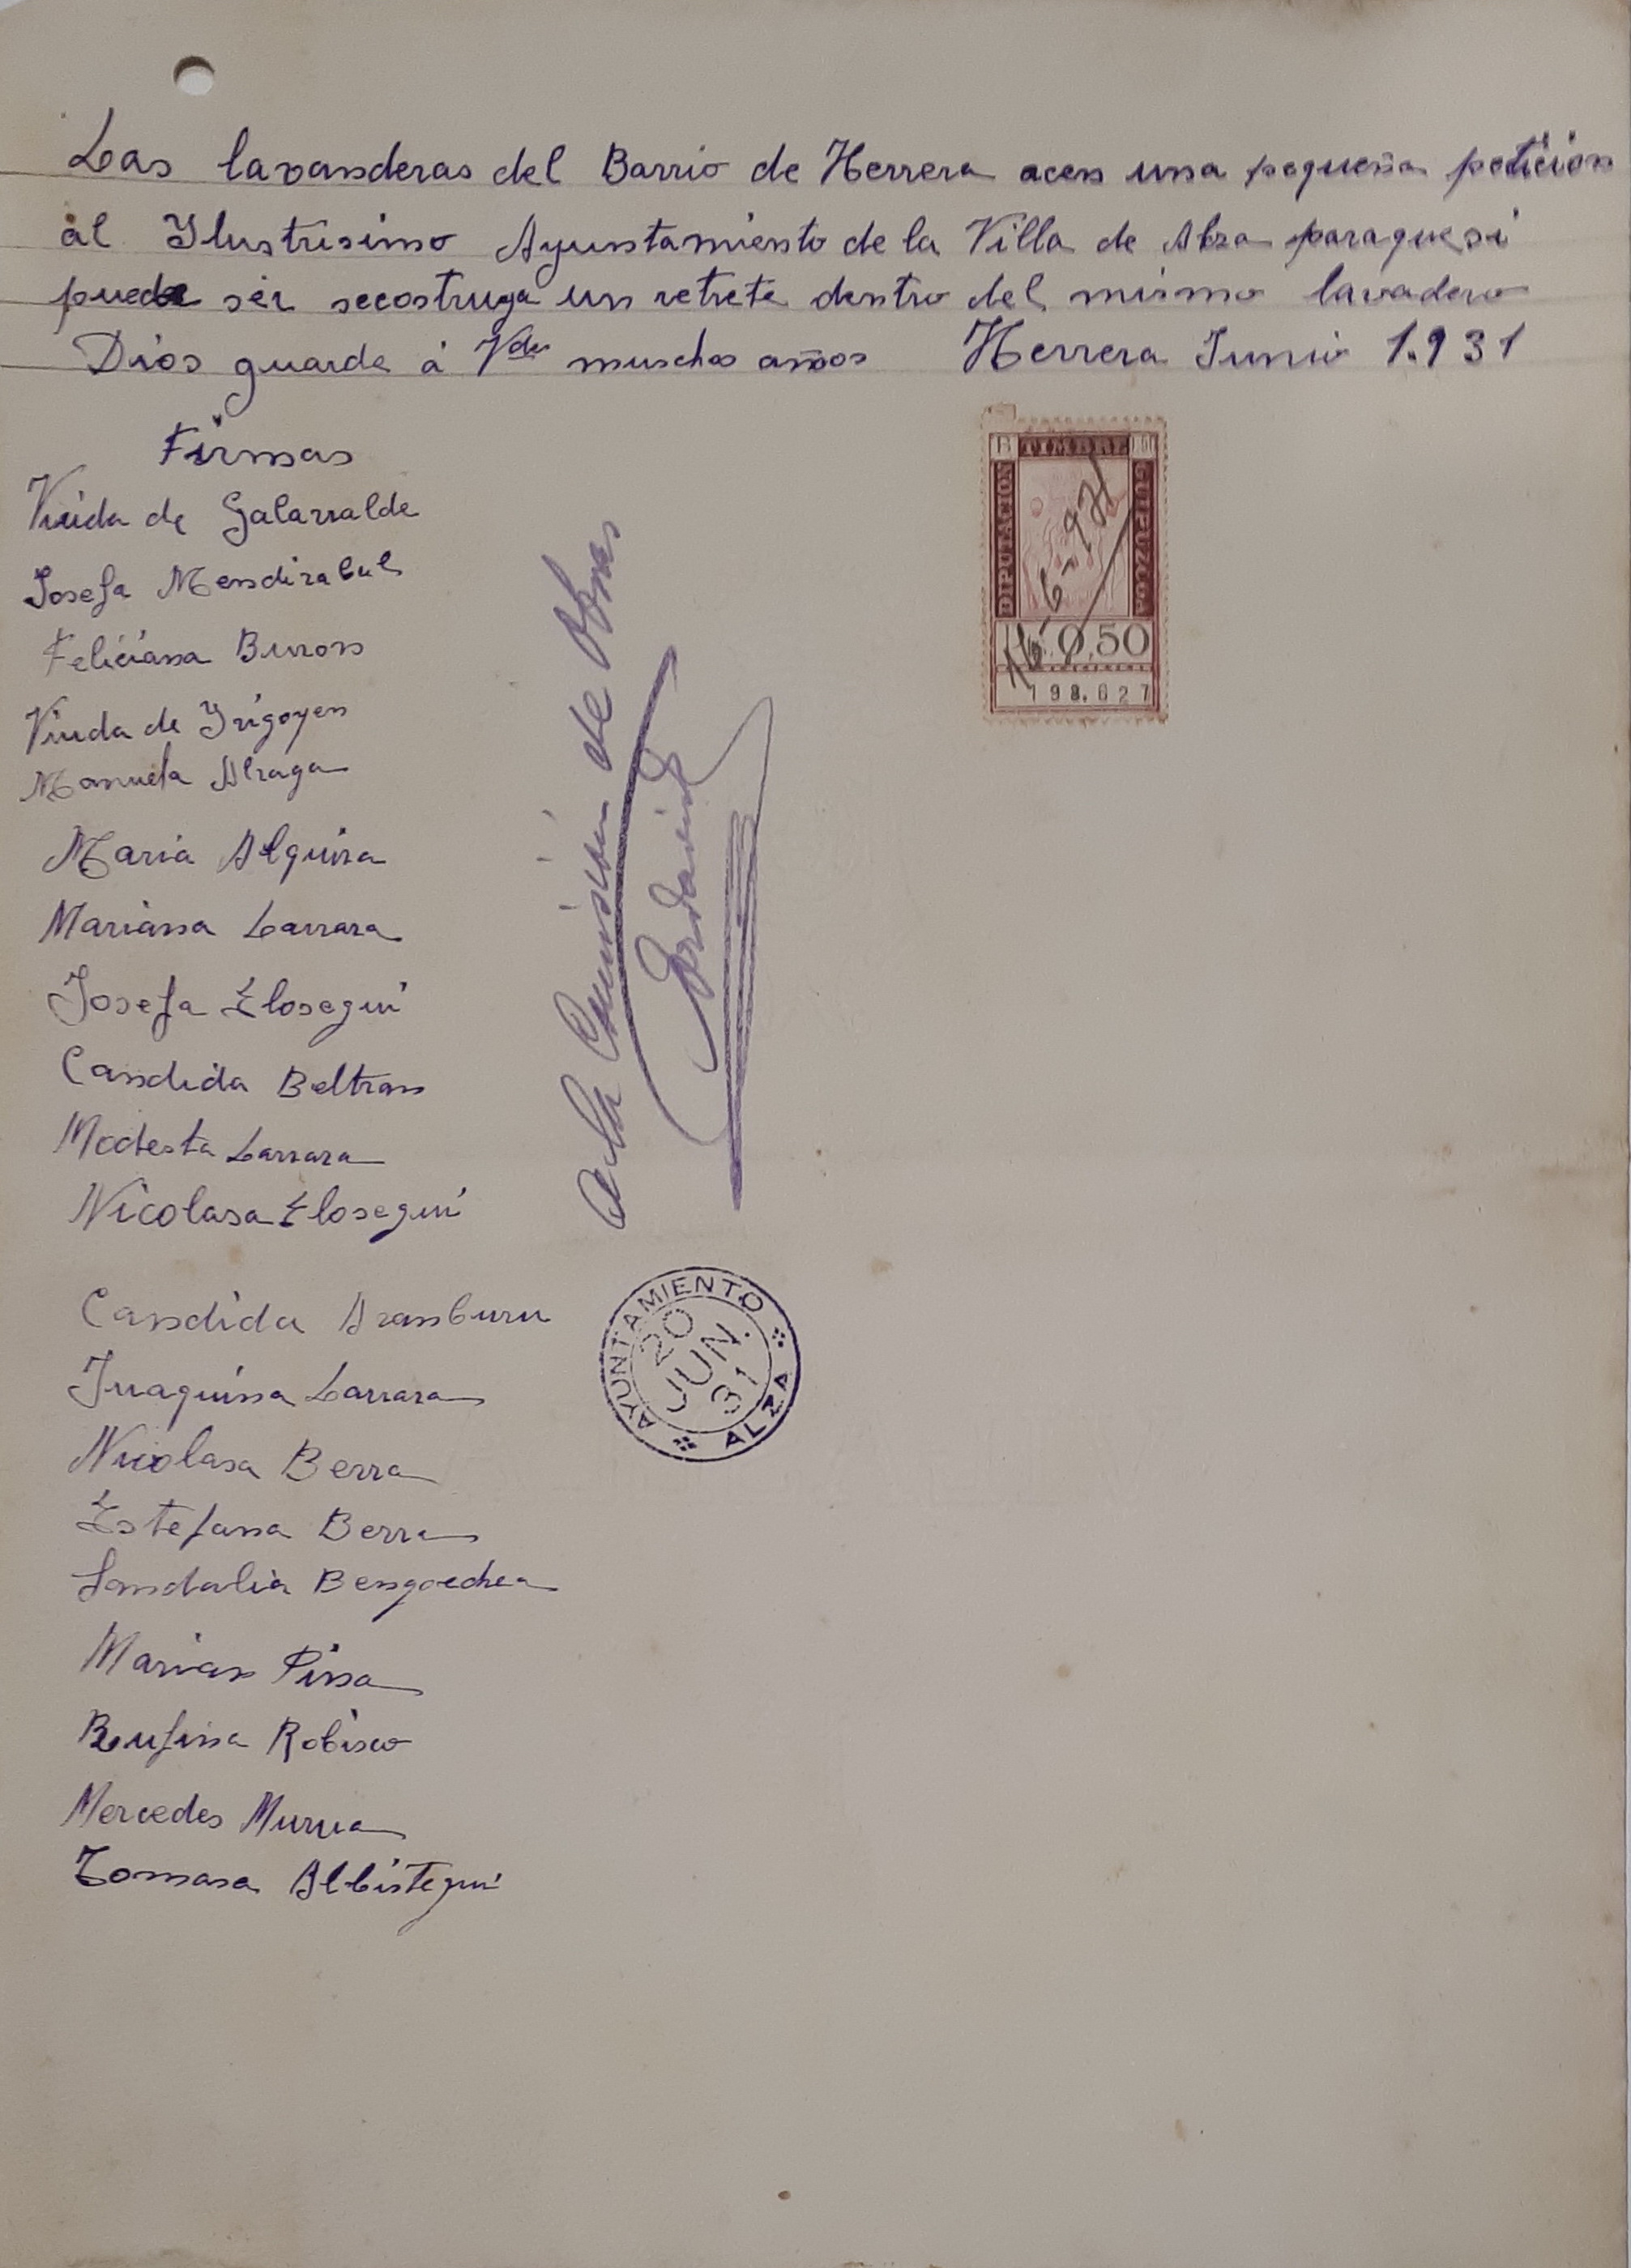 Las lavanderas del Barrio de Herrera acen una pequeña peticion
al Ilustrisimo Ayuntamiento de la Villa de Alza paraque si
puede ser secostruya un retrete dentro del mismo lavadero
Dios guarde á Vdes muschos años Herrera Junio 1.931
Firmas
Viuda de Galarralde
Josefa Mendizabal
Feliciana Buron
Viuda de Irigoyen
Manuela
Maria
Mariana Larrara
Josefa Elosegui
Candida Beltran
Modesta Larrara
Nicolasa Elosegui
Candida Aramburu
Juaquina Larrara
Nicolasa Berra
Estefana Berra
Sandalia Bengoechea
Marian Pina
Rufina Robisco
Mercedes Murua
Tomasa Albistegui
A la Comisión de Obras
TIMBRE
DIPUTACION
GUIPUZCOA
16-6-931
0,50
198.627
AYUNTAMIENTO
20
JUN.
31
ALZA